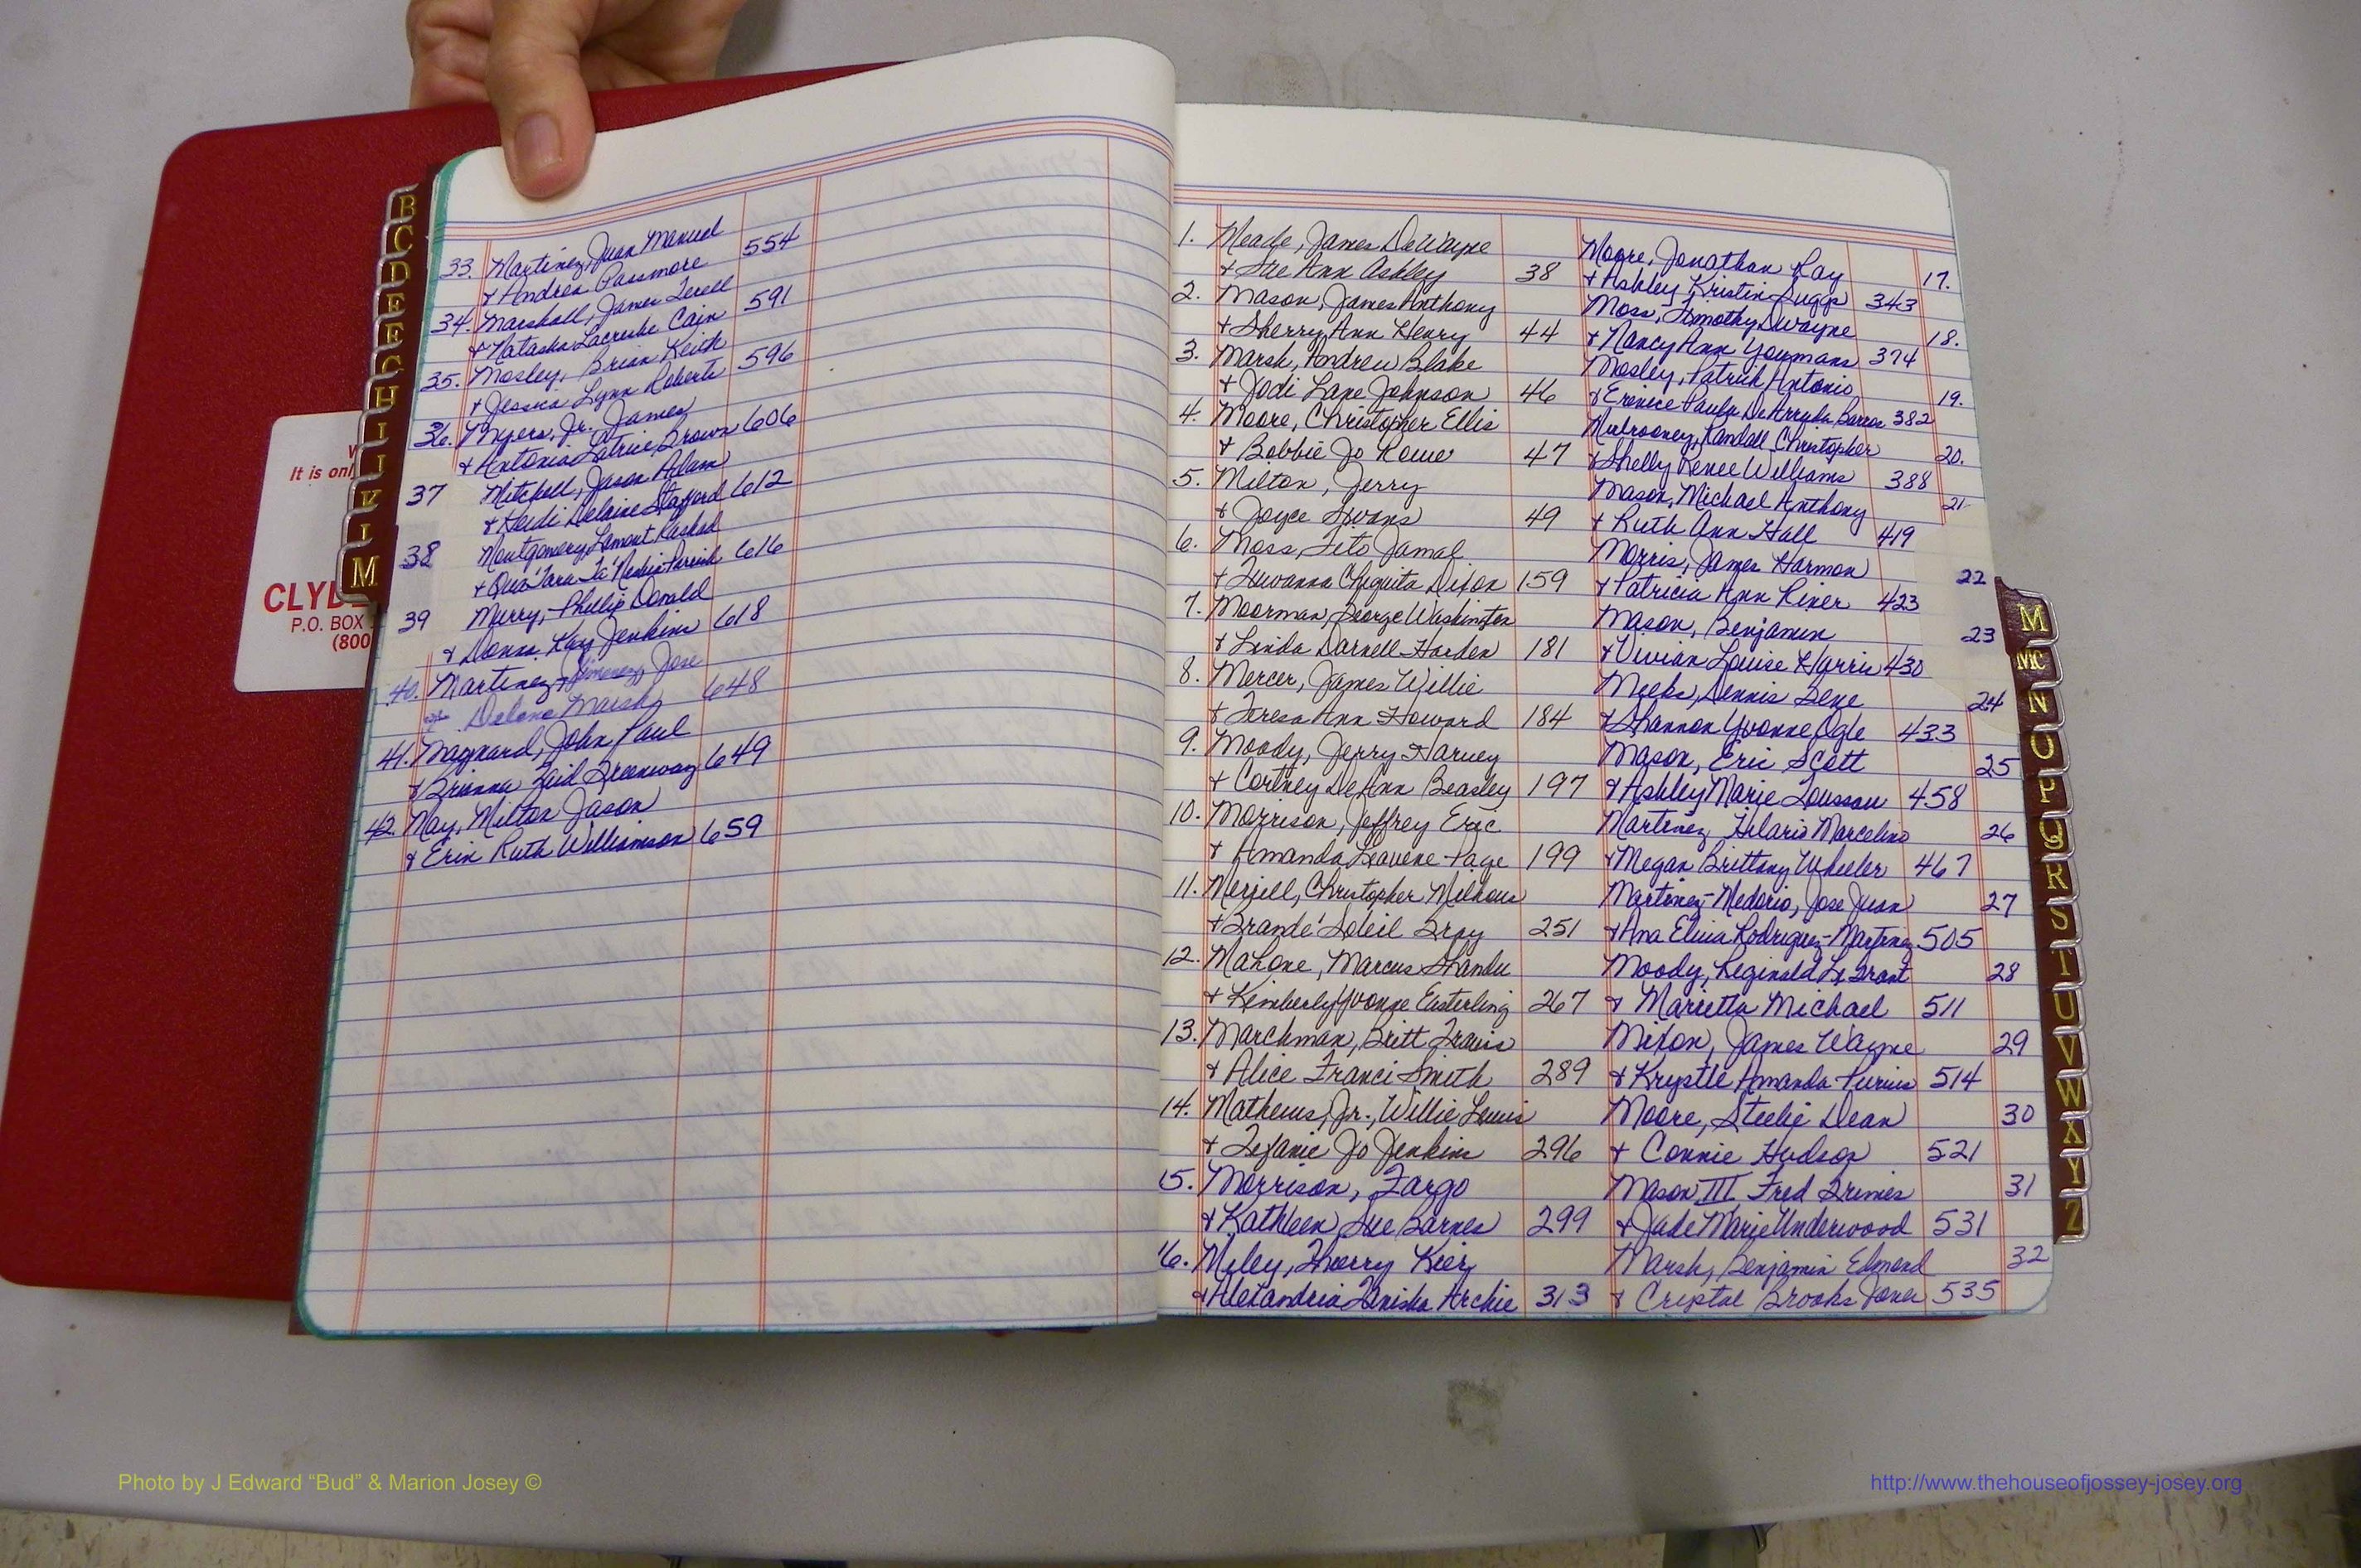 33. Martinez, Juan Manuel
+ Andrea Passmore 554
34. Marshall, James Terell
+ Natasha Lacreshe Cain 591
35. Mosley, Brian Keith
+ Jessica Lynn Roberts 596
36. Myers, Jr. James
+ Antonia Latrice Brown 606
37 Mitchell, Jason Adam
+ Heidi Delaine Stafford 612
38 Montgomery, Lamont Rashad
616
39 Murry, Phillip Donald
+ Donna Kay Jenkins 618
40. Martinez-Jimenez, Jose
Marsh 648
41. Maynard, John Paul
+ Brianna Greenway 649
42. May, Milton Jason
+ Erin Ruth Williamson 659
B
C
D
E
F
G
H
I
J
K
L
M
It is onl
CLYD
P.O. BOX
(800
1. Meade, James DeWayne
+ Sue Ann Ashley 38
2. Mason, James Anthony
+ Sherry Ann Henry 44
3. Marsh, Andrew Blake
+ Jodi Lane Johnson 46
4. Moore, Christopher Ellis
+ Bobbie Jo Rowe 47
5. Milton, Jerry
+ Joyce Swans 49
6. Moss, Tito Jamal
+ Tuwanna Chiquita Dixon 159
7. Moorman, George Washington
+ Linda Darnell Harden 181
8. Mercer, James Willie
+ Teresa Ann Howard 184
9. Moody, Jerry Harvey
+ Cortney DeAnn Beasley 197
10. Morrison, Jeffrey Eric
+ Amanda Leavene Page 199
11. Merrell, Christopher Milhous
+ Brande' Soleil Gray 251
12. Mahone, Marcus Shandu
+ Kimberly Yvonne Easterling 267
13. Marchman, Britt Travis
+ Alice Franci Smith 289
14. Mathews, Jr., Willie Lewis
+ Tefanie Jo Jenkins 296
15. Morrison, Fargo
+ Kathleen Sue Barnes 299
16. Miley, Thierry Keir
+ Alexandria Tanisha Archie 313
Moore, Jonathan Ray 17.
+ Ashley Kristin Suggs 343
Moss, Timothy Dwayne 18.
+ Nancy Ann Youmans 374
Mosley, Patrick Antonio 19.
+ Erenice Paula DeArruda Barros 382
Mulrooney, Randall Christopher 20.
+ Shelly Renee Williams 388
Mason, Michael Anthony 21.
+ Ruth Ann Hall 419
Morris, James Harmon 22
+ Patricia Ann Riner 423
Mason, Benjamin 23
+ Vivian Louise Harris 430
Meeks, Dennis Gene 24
+ Shannon Yvonne Ogle 433
Mason, Eric Scott 25
+ Ashley Marie Toussau 458
Martinez Hilario Marcelino 26
+ Megan Brittany Wheeler 467
Martinez-Medorio, Jose Juan 27
+ Ana Elivia Rodriguez-Martinez 505
Moody, Reginald L. Grant 28
+ Marietta Michael 511
Mixon, James Wayne 29
+ Krystle Amanda Purvis 514
Moore, Steelie Dean 30
+ Connie Hudson 521
Mason III Fred Grimes 31
+ Jade Marie Underwood 531
Marsh, Benjamin Edmond 32
+ Crystal Brooke Jones 535
M
MC
N
O
P
Q
R
S
T
U
V
W
X
Y
Z
Photo by J Edward “Bud” & Marion Josey ©
http://www.thehouseofjossey-josey.org